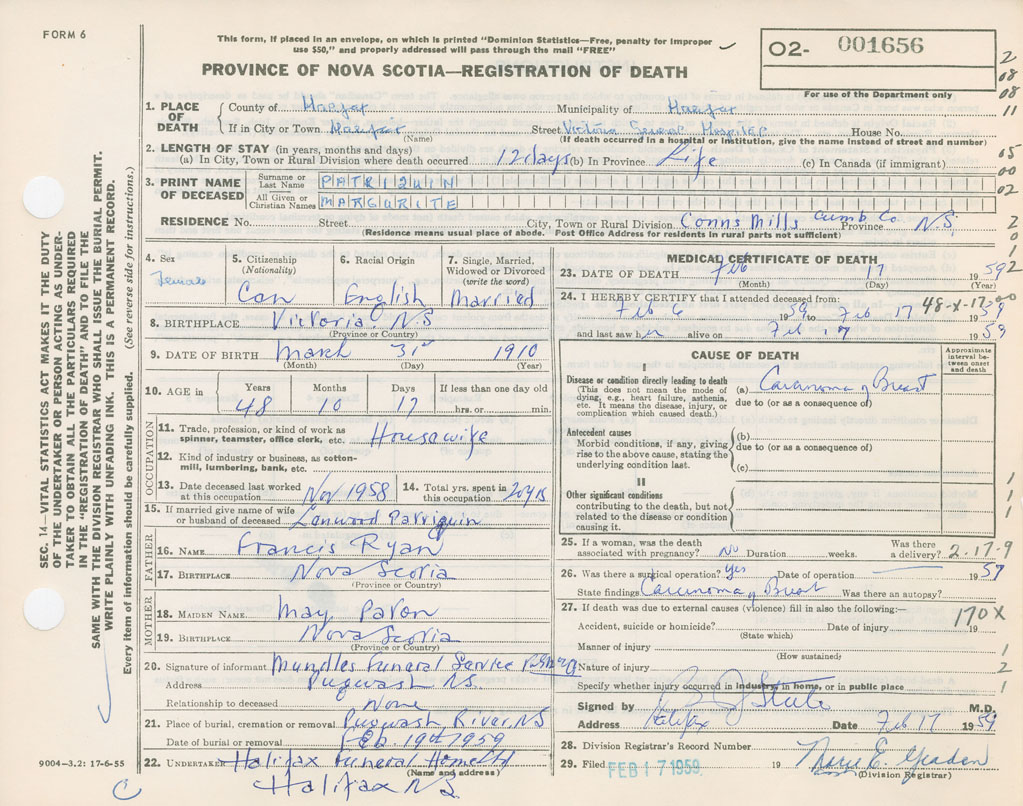 FORM 6
This form, if placed in an envelope, on which is printed "Dominion Statistics—Free, penalty for improper
use $50," and properly addressed will pass through the mail "FREE"
PROVINCE OF NOVA SCOTIA—REGISTRATION OF DEATH
O2- 001656
For use of the Department only
2
08
08
11
05
00
02
2
0
1
2
00
1. PLACE OF DEATH
County of Halifax Municipality of Halifax
If in City or Town Halifax Street Victoria General Hospital House No.
(Name) (If death occurred in a hospital or institution, give the name instead of street and number)
2. LENGTH OF STAY (in years, months and days)
(a) In City, Town or Rural Division where death occurred 12 days (b) In Province Life (c) In Canada (if immigrant)
3. PRINT NAME OF DECEASED
Surname or Last Name PATRIQUIN
All Given or Christian Names MARGURITE
RESIDENCE No. Street City, Town or Rural Division Conns Mills Cumb Co. Province N.S.
(Residence means usual place of abode. Post Office Address for residents in rural parts not sufficient)
4. Sex Female
5. Citizenship (Nationality) Can
6. Racial Origin English
7. Single, Married, Widowed or Divorced (write the word) Married
8. BIRTHPLACE Victoria, N.S
(Province or Country)
9. DATE OF BIRTH March 31st 1910
(Month) (Day) (Year)
10. AGE in Years Months Days If less than one day old
48 10 17 hrs. or min.
OCCUPATION
11. Trade, profession, or kind of work as spinner, teamster, office clerk, etc. Housewife
12. Kind of industry or business, as cotton-mill, lumbering, bank, etc.
13. Date deceased last worked at this occupation Nov 1958
14. Total yrs. spent in this occupation 20 yrs
15. If married give name of wife or husband of deceased Lenwood Patriquin
FATHER
16. NAME Francis Ryan
17. BIRTHPLACE Nova Scotia
(Province or Country)
MOTHER
18. MAIDEN NAME May Paton
19. BIRTHPLACE Nova Scotia
(Province or Country)
20. Signature of informant Mundles Funeral Service
Address Pugwash N.S.
Relationship to deceased None
21. Place of burial, cremation or removal Pugwash River, N.S
Date of burial or removal Feb. 19th 1959
22. UNDERTAKER Halifax Funeral Home Ltd
(Name and address)
Halifax N.S.
MEDICAL CERTIFICATE OF DEATH
23. DATE OF DEATH Feb 17 1959
(Month) (Day) (Year)
24. I HEREBY CERTIFY that I attended deceased from:
Feb 6 1959 to Feb 17 1959
48-X-17
and last saw her alive on Feb 17 1959
CAUSE OF DEATH
Approximate interval between onset and death
I
Disease or condition directly leading to death
(This does not mean the mode of dying, e.g., heart failure, asthenia, etc. It means the disease, injury, or complication which caused death.)
(a) Carcinoma of Breast
due to (or as a consequence of)
Antecedent causes
Morbid conditions, if any, giving rise to the above cause, stating the underlying condition last.
(b)
due to (or as a consequence of)
(c)
II
Other significant conditions
contributing to the death, but not related to the disease or condition causing it.
1
1
1
25. If a woman, was the death associated with pregnancy? No Duration weeks. Was there a delivery?
2-17-9
26. Was there a surgical operation? Yes Date of operation 1957
State findings Carcinoma of Breast Was there an autopsy?
27. If death was due to external causes (violence) fill in also the following:—
170X
Accident, suicide or homicide? Date of injury 19
(State which)
Manner of injury 1
(How sustained)
Nature of injury 2
Specify whether injury occurred in industry, in home, or in public place 1
Signed by M.D.
Address Halifax Date Feb 17 1959
28. Division Registrar's Record Number
29. Filed FEB 17 1959 19
(Division Registrar)
SEC. 14—VITAL STATISTICS ACT MAKES IT THE DUTY
OF THE UNDERTAKER OR PERSON ACTING AS UNDER-
TAKER TO OBTAIN ALL THE PARTICULARS REQUIRED
IN THE "REGISTRATION OF DEATH" AND TO FILE THE
SAME WITH THE DIVISION REGISTRAR WHO SHALL ISSUE THE BURIAL PERMIT.
WRITE PLAINLY WITH UNFADING INK. THIS IS A PERMANENT RECORD.
Every item of information should be carefully supplied. (See reverse side for instructions.)
9004-3.2: 17-6-55